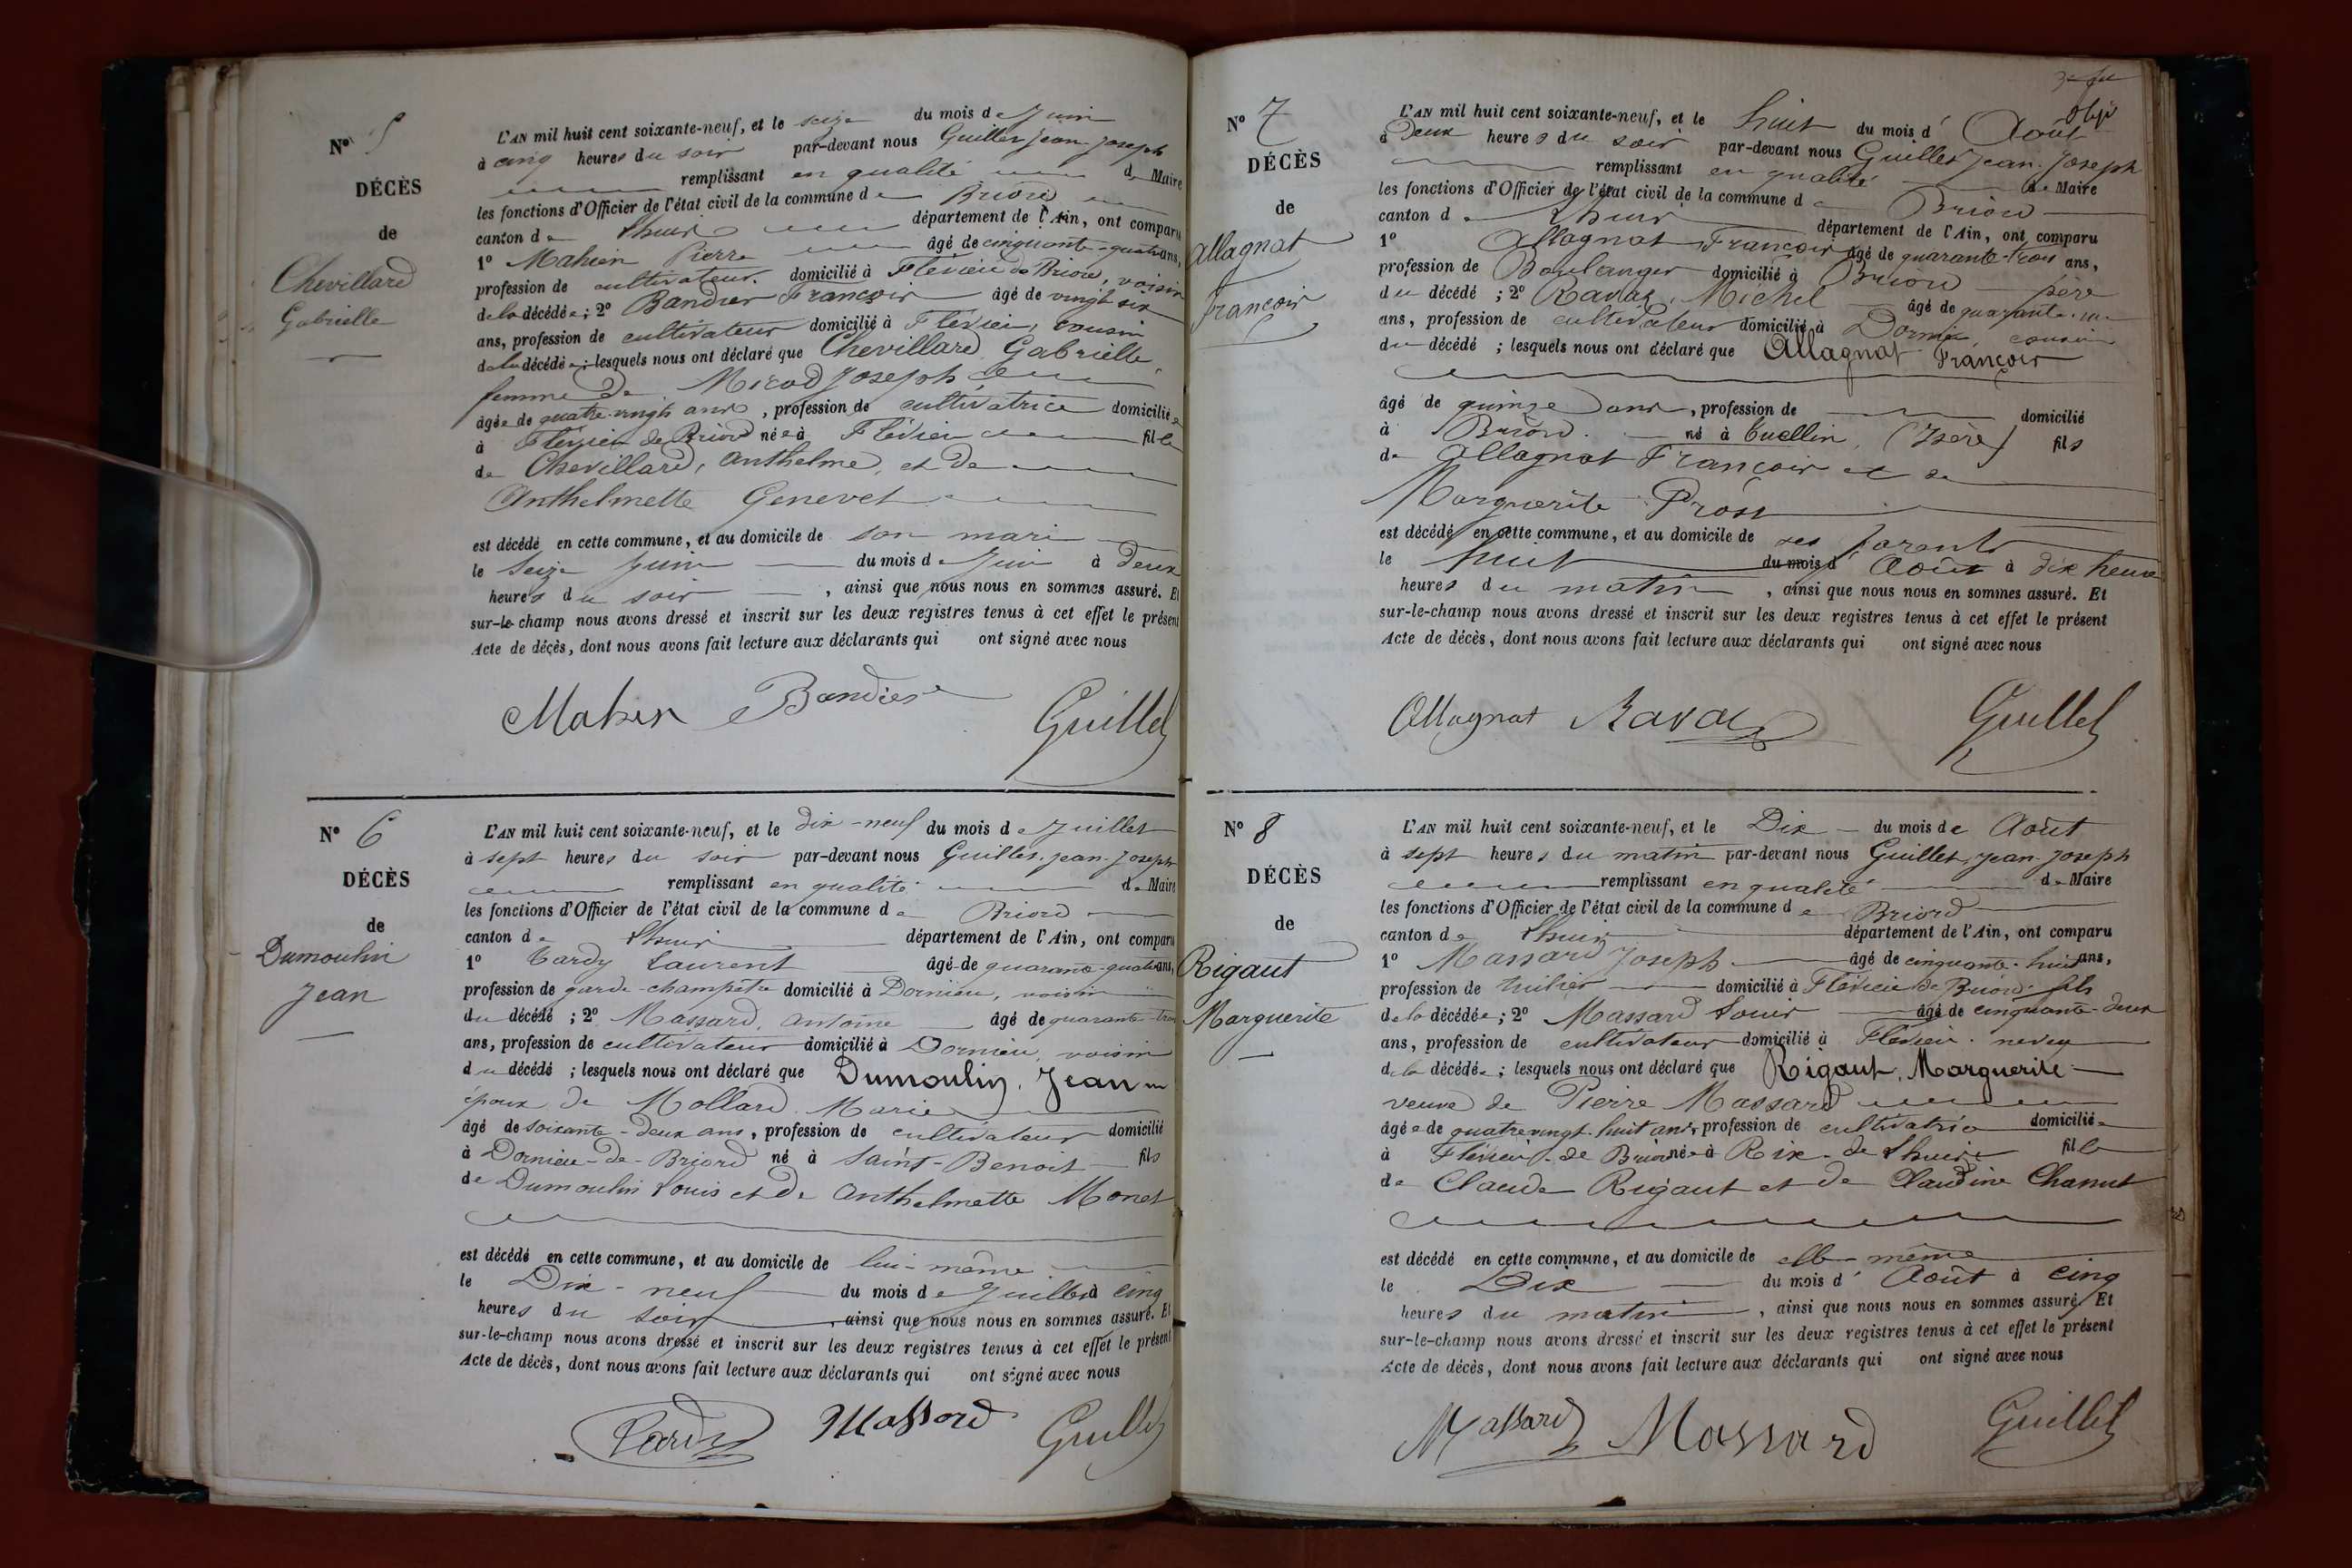 N° 5
DÉCÈS
de
Chevillard
Gabrielle
L'AN mil huit cent soixante-neuf, et le seize du mois de Juin
à cinq heures du soir par-devant nous Guillet Jean-Joseph
remplissant en qualité de Maire
les fonctions d'Officier de l'état civil de la commune de Briord
canton de Lhuis département de l'Ain, ont comparu
1° Mahieu Pierre âgé de cinquante-quatre ans,
profession de cultivateur domicilié à Flévieu de Briord, voisin
de la décédée ; 2° Bandier François âgé de vingt six
ans, profession de cultivateur domicilié à Flévieu, cousin
de la décédée ; lesquels nous ont déclaré que Chevillard Gabrielle,
femme de Joseph
âgée de quatre-vingts ans, profession de cultivatrice domiciliée
à Flévieu de Briord née à Flévieu fille
de Chevillard, Anthelme, et de
Anthelmette Genevet
est décédé en cette commune, et au domicile de son mari
le seize Juin du mois de Juin à deux
heures du soir, ainsi que nous nous en sommes assuré. Et
sur-le-champ nous avons dressé et inscrit sur les deux registres tenus à cet effet le présent
Acte de décès, dont nous avons fait lecture aux déclarants qui ont signé avec nous
Bandier Guillet
N° 6
DÉCÈS
de
Dumoulin
Jean
L'AN mil huit cent soixante-neuf, et le dix-neuf du mois de Juillet
à sept heures du soir par-devant nous Guillet Jean-Joseph
remplissant en qualité de Maire
les fonctions d'Officier de l'état civil de la commune de Briord
canton de Lhuis département de l'Ain, ont comparu
1° Tardy Laurent âgé de quarante-quatre ans,
profession de garde-champêtre domicilié à Dornieu, voisin
du décédé ; 2° Massard, Antoine âgé de quarante-trois
ans, profession de cultivateur domicilié à Dornieu, voisin
du décédé ; lesquels nous ont déclaré que Dumoulin, Jean
époux de Mollard Marie
âgé de soixante-deux ans, profession de cultivateur domicilié
à Dornieu-de-Briord né à Saint-Benoit fils
de Dumoulin Louis et de Anthelmette Monet
est décédé en cette commune, et au domicile de lui-même
le Dix-neuf du mois de Juillet à cinq
heures du soir, ainsi que nous nous en sommes assuré. Et
sur-le-champ nous avons dressé et inscrit sur les deux registres tenus à cet effet le présent
Acte de décès, dont nous avons fait lecture aux déclarants qui ont signé avec nous
Tardy Massard Guillet
N° 7
DÉCÈS
de
Allagnat
François
L'AN mil huit cent soixante-neuf, et le huit du mois d' Août
à Deux heures du soir par-devant nous Guillet Jean-Joseph
remplissant en qualité de Maire
les fonctions d'Officier de l'état civil de la commune de Briord
canton de Lhuis département de l'Ain, ont comparu
1° Allagnat François âgé de quarante-trois ans,
profession de Boulanger domicilié à Briord père
du décédé ; 2° Ravaz, Michel âgé de quarante-un
ans, profession de cultivateur domicilié à Dornieu, cousin
du décédé ; lesquels nous ont déclaré que Allagnat François
âgé de quinze ans, profession de domicilié
à Briord né à Cuellin, (Isère) fils
de Allagnat François et de
Marguerite Prost
est décédé en cette commune, et au domicile de ses parents
le huit du mois d' Août à dix heures
heures du matin, ainsi que nous nous en sommes assuré. Et
sur-le-champ nous avons dressé et inscrit sur les deux registres tenus à cet effet le présent
Acte de décès, dont nous avons fait lecture aux déclarants qui ont signé avec nous
Allagnat Ravaz Guillet
N° 8
DÉCÈS
de
Rigaut
Marguerite
L'AN mil huit cent soixante-neuf, et le Dix du mois de Août
à sept heures du matin par-devant nous Guillet, Jean-Joseph
remplissant en qualité de Maire
les fonctions d'Officier de l'état civil de la commune de Briord
canton de Lhuis département de l'Ain, ont comparu
1° Massard Joseph âgé de cinquante-huit ans,
profession de huilier domicilié à Flévieu de Briord fils
de la décédée ; 2° Massard Louis âgé de cinquante-deux
ans, profession de cultivateur domicilié à Flévieu. neveu
de la décédée ; lesquels nous ont déclaré que Rigaut, Marguerite
veuve de Pierre Massard
âgée de quatre vingt-huit ans, profession de cultivatrice domiciliée
à Flévieu-de Briord née à Rix-de Lhuis fille
de Claude Rigaut et de Claudine Chanut
est décédé en cette commune, et au domicile de elle-même
le Dix du mois d' Août à cinq
heures du matin, ainsi que nous nous en sommes assuré. Et
sur-le-champ nous avons dressé et inscrit sur les deux registres tenus à cet effet le présent
Acte de décès, dont nous avons fait lecture aux déclarants qui ont signé avec nous
Massard Massard Guillet